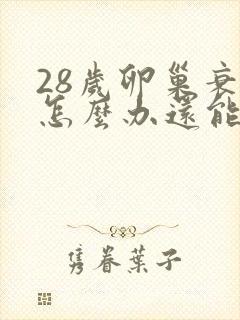 28歲卵巢衰
怎麼办還能
隽眷葉子